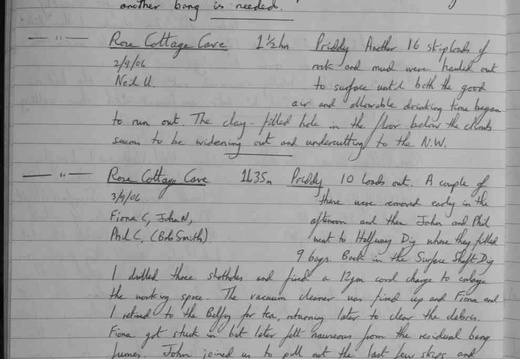 another bang is needed.
— " — Rose Cottage Cave 1½hr Priddy Another 16 skiploads of
2/9/06 rock and mud were hauled out
Neil U. to surface until both the good
air and allowable drinking time began
to run out. The clay-filled hole in the floor below the climb
seems to be widening out and undercutting to the N.W.
— " — Rose Cottage Cave 1h35m Priddy 10 loads out. A couple of
3/9/06 these were removed early in the
Fiona C, John N, afternoon and then John and Phil
Phil C, (Bob Smith) went to Halfway Dig where they filled
9 bags. Back in the Surface Shaft Dig
I drilled three shotholes and fired a 12gm cord charge to enlarge
the working space. The vacuum cleaner was fired up and Fiona and
I retired to the Belfry for tea, returning later to clear the debris.
Fiona got stuck in but later felt nauseous from the residual bang
fumes. John joined us to pull out the last few skips and